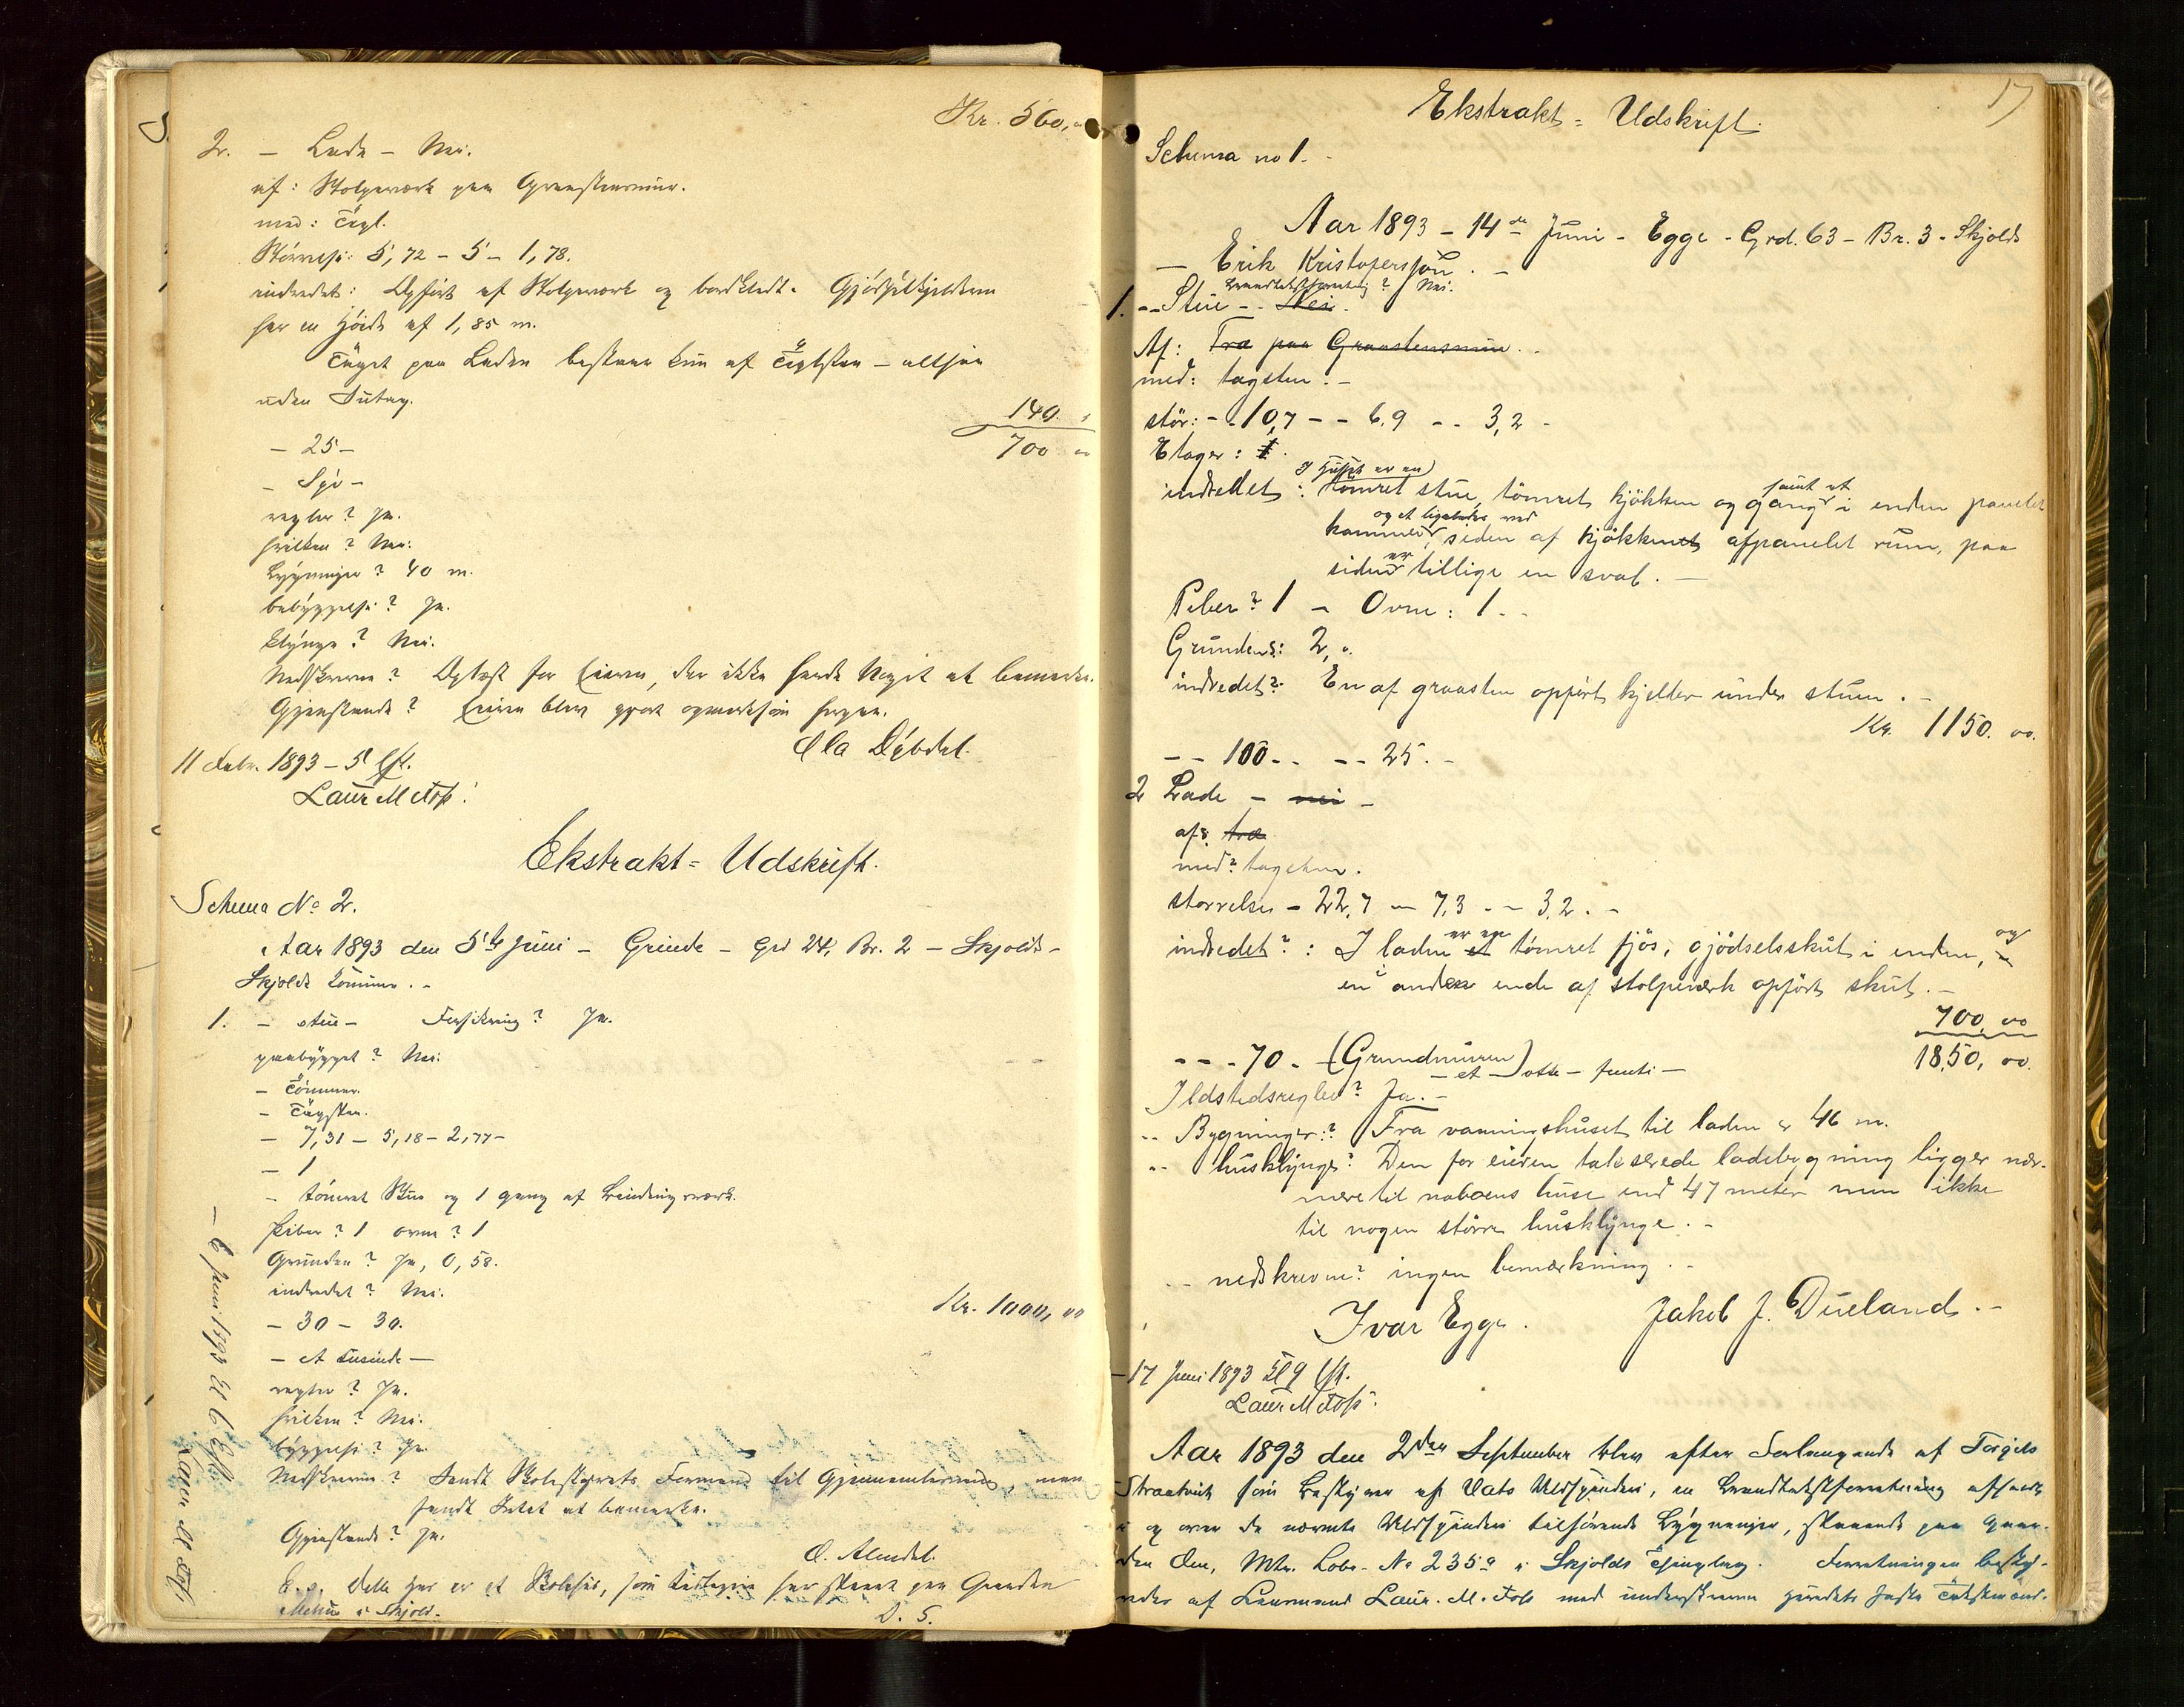 Kr. 560,00
2. – Lade – Nei.
af: Stolpeværk paa Graastensmur.
med: Tægl.
Størrelse: 5,72 – 5 – 1,78.
indredet: Opført af Stolpeværk og bordklædt. Gjødselkjelderen
har en Høide af 1,85 m.
Taget paa Laden bestaar kun af Teglsten – altsaa
uden Sutag.
140. "
700 00
– 25 –
– Syv –
regler? Ja.
hvilken? Nei.
Bygninger? 40 m.
bebyggelse? Ja.
klynge? Nei.
Nedskrevne? Oplæst for Eieren, der ikke havde Noget at bemærke.
Gjenstande? Eieren blev gjort opmerksom herpaa.
Ola Dybdal.
11 Febr. 1893 – 5 Eft.
Laur M Foss.
Ekstrakt = Udskrift.
Schema No 2.
Aar 1893 den 5te Juni – Grinde – Grd 24, Br. 2 – Skjolds –
Skjolds Kommune. –
1. – Stue – Forsikring? Ja.
paabygget? Nei.
– Tømmer.
– Tagsten.
– 7,31 – 5,18 – 2,77 –
– 1
– tømret Stue og 1 gang af Bindingsværk.
Piber? 1 ovne? 1
Grunden? Ja, 0,58.
indredet? Nei.
Kr. 1000,00
– 30 – 30.
– et tusinde –
regler? Ja.
hvilken? Nei.
byggelse? Ja.
Nedskrevne? Sendt Skolestyrets Formand til Gjennemlæsning, men
fandt Intet at bemærke.
Gjenstande? Ja.
O. Alendal.
E. o. dette Hus er et Skolehus, som tidligere har staaet paa Gaarden
i Skjold.
D. S.
– 6 Juni 1893 Kl 6 Eft.
Laur M Foss.
17
Ekstrakt = Udskrift.
Schema no 1. –
Aar 1893 – 14de Juni – Egge – Grd. 63 – Br. 3 – Skjolds
– Erik Kristofersson. –
Brandtakstforretning? Nei.
1. – – Stue – – Nei.
Af: Træ paa Graastensmur. –
med: tagsten. –
stör: – – 10,7 – – 6,9 – – 3,2 –
Etager: 1.
I Huset er en
indredet: tömret stue, tömret kjökken og gang samt et i enden panelet
kammer og et ligeledes ved siden af kjökkenet afpanelet rum, paa
siden er tillige en sval. –
Piber? 1 – Ovne: 1. –
Grunden: 2,0.
indredet? En af graasten opfört kjelder under stuen. –
Kr. 1150. 00.
– – 100 – – – – 25. –
2 Lade – nei –
af: træ
med? tagsten.
størrelse – 22,7 – 7,3 – – 3,2. –
indredet?: I laden er en et tömret fjös, gjödselsskut i enden, og
i en anden ende af stolpeværk opfört skut. –
700,00
– – – 70 – (Grundmuren) – et – otte – femti – 1850,00.
Ildstedsregler? Ja. –
– – Bygninger? Fra vaaningshuset til laden er 46 m.
– – husklynge? Den for eieren takserede ladebygning ligger nær-
mere til naboens huse end 47 meter men ikke
til nogen större husklynge. –
– – nedskrevne? ingen bemærkning. –
Ivar Egge. Jakob J. Dueland. –
– 17 Juni 1893 Kl 9 Eft.
Laur M Foss.
Aar 1893 den 2den September blev efter Forlangende af Torgils
Straatveit som Bestyrer af Vats Uldspinderi, en Brandtakstforretning afholdt
i og over de nævnte Uldspinderi tilhørende Bygninger, staaende paa Gaar-
den Øen, Mtr. Løbe-No 235a i Skjolds Thinglag. Forretningen besty-
redes af Lensmand Laur. M. Foss med underskrevne særskilt faste Takstmænd.